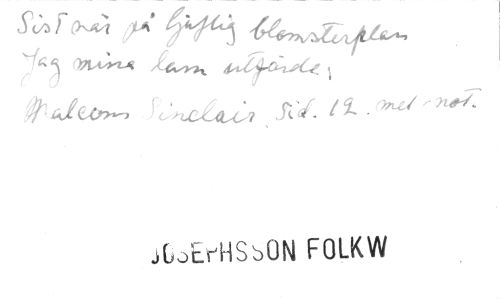 Sist när på ljuflig blomsterplan
Jag mina lam utförde;
Malcom Sinclair. Sid. 12. med not.
JOSEPHSSON FOLKW